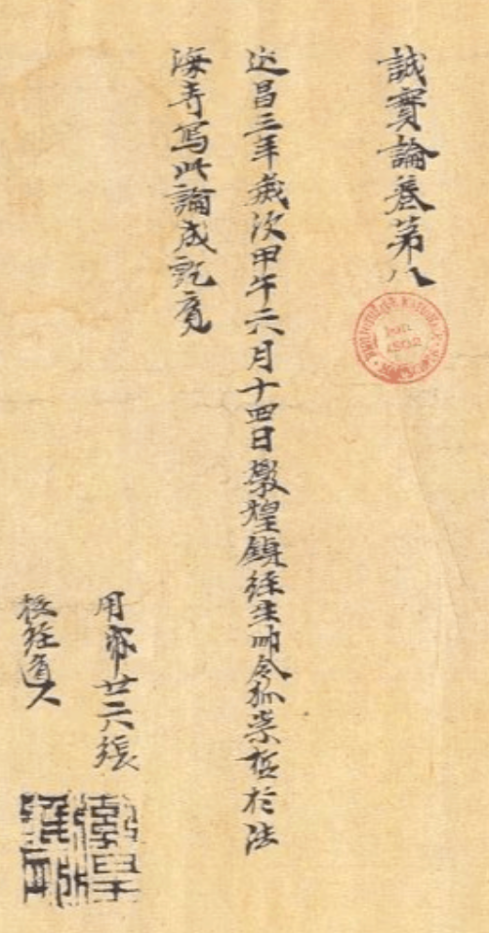 誠實論卷第八
延昌三年歲次甲午六月十四日敦煌鎮經生師令狐崇哲於法
海寺寫此論成訖竟
用帋廿六張
校經道人